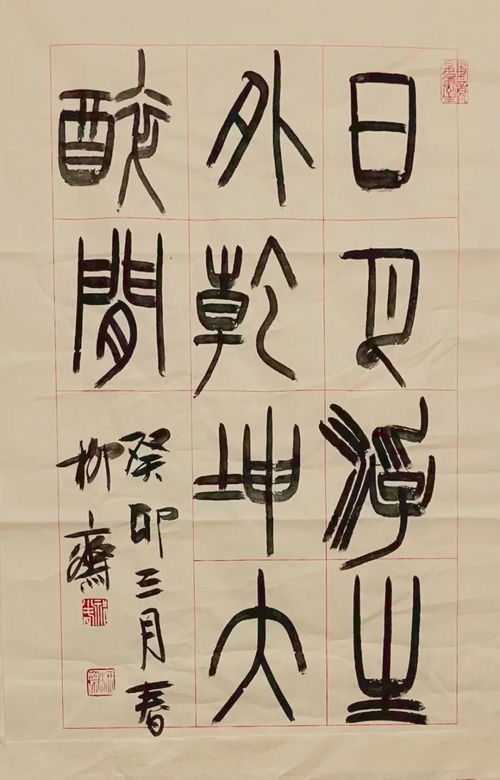 日月浮生
外乾坤大
醉閒
癸卯三月春
柳齋